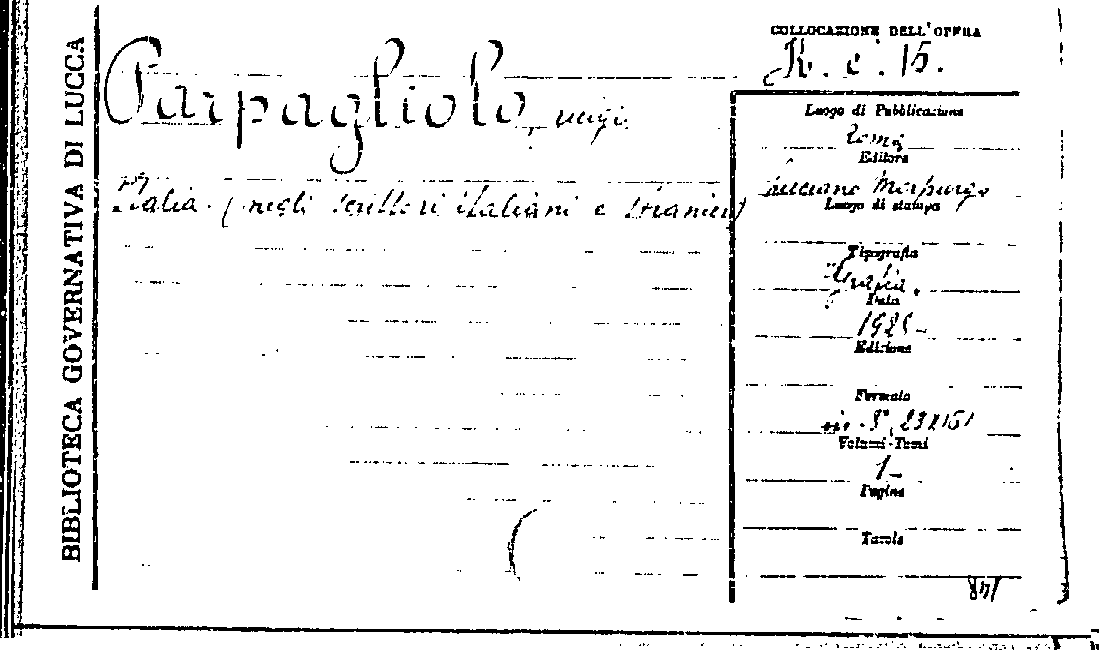 BIBLIOTECA GOVERNATIVA DI LUCCA
COLLOCAZIONE DELL'OPERA
Parpagliolo, Luigi
Italia (negli scrittori italiani e stranieri)
Luogo di Pubblicazione
Roma
Editore
Luciano Morpurgo
Luogo di stampa
Tipografia
Data
Edizione
Formato
in-8°,
Volumi-Tomi
1-
Pagine
Tavole